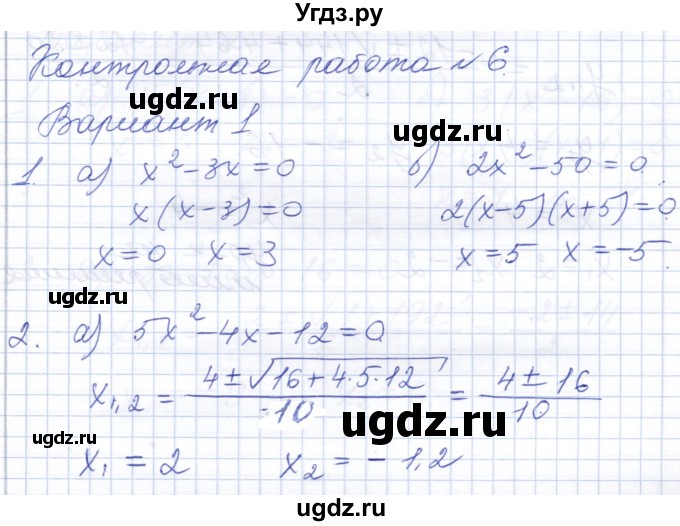 Угдз.ру
Контрольная работа №6
ugdz.ru
Вариант 1
ugdz.ru
1. а) x² - 3x = 0   б) 2x² - 50 = 0
ugdz.ru
x(x - 3) = 0   2(x - 5)(x + 5) = 0
x = 0   x = 3   x = 5   x = -5
ugdz.ru
ugdz.ru
2. а) 5x² - 4x - 12 = 0
x₁,₂ = (4 ± √(16 + 4·5·12))/10 = (4 ± 16)/10
ugdz.ru
ugdz.ru
x₁ = 2   x₂ = -1,2
ugdz.ru
ugdz.ru